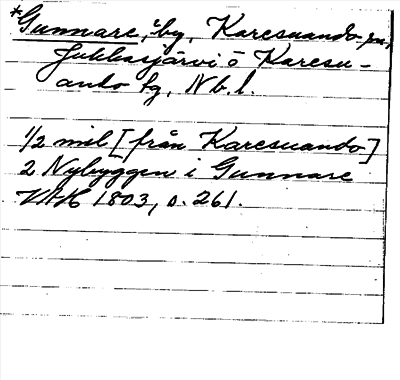 *Gunnare, by, Karesuando sn,
Jukkasjärvi o Karesu-
ando tg, Nb.l.
1/2 mil [från Karesuando]
2 Nybyggen i Gunnare
1803, s. 261.